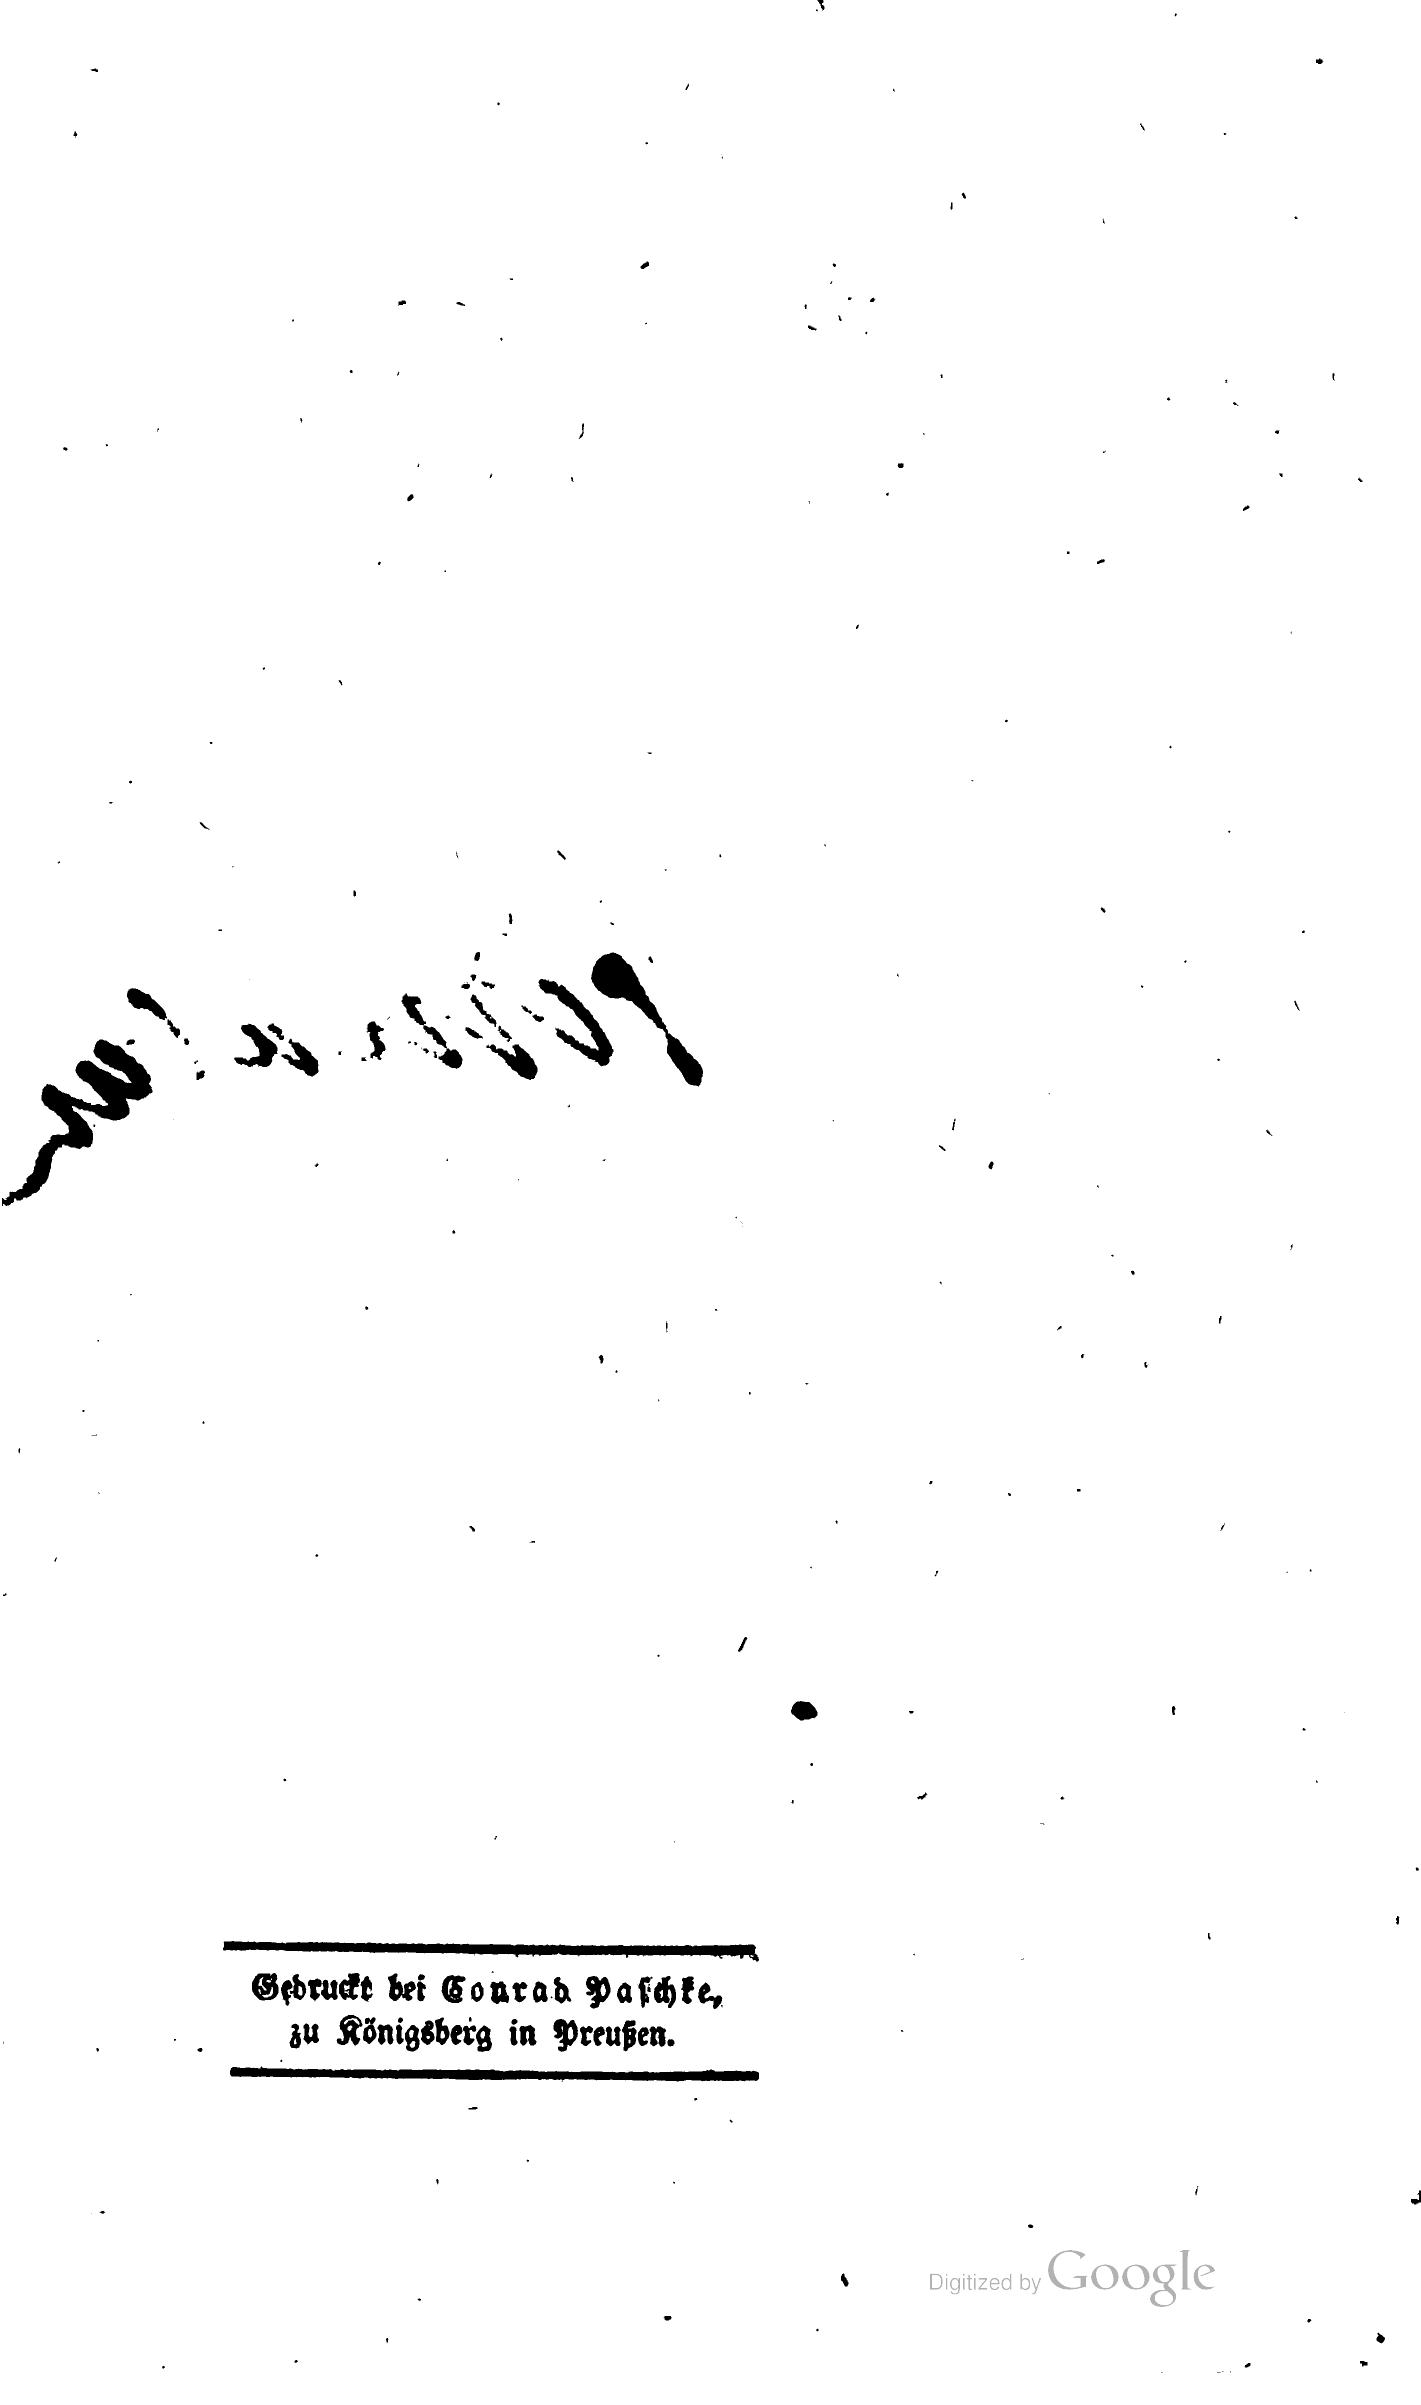 Gedruckt bei Conrad Paschke,
zu Königsberg in Preußen.
Digitized by Google